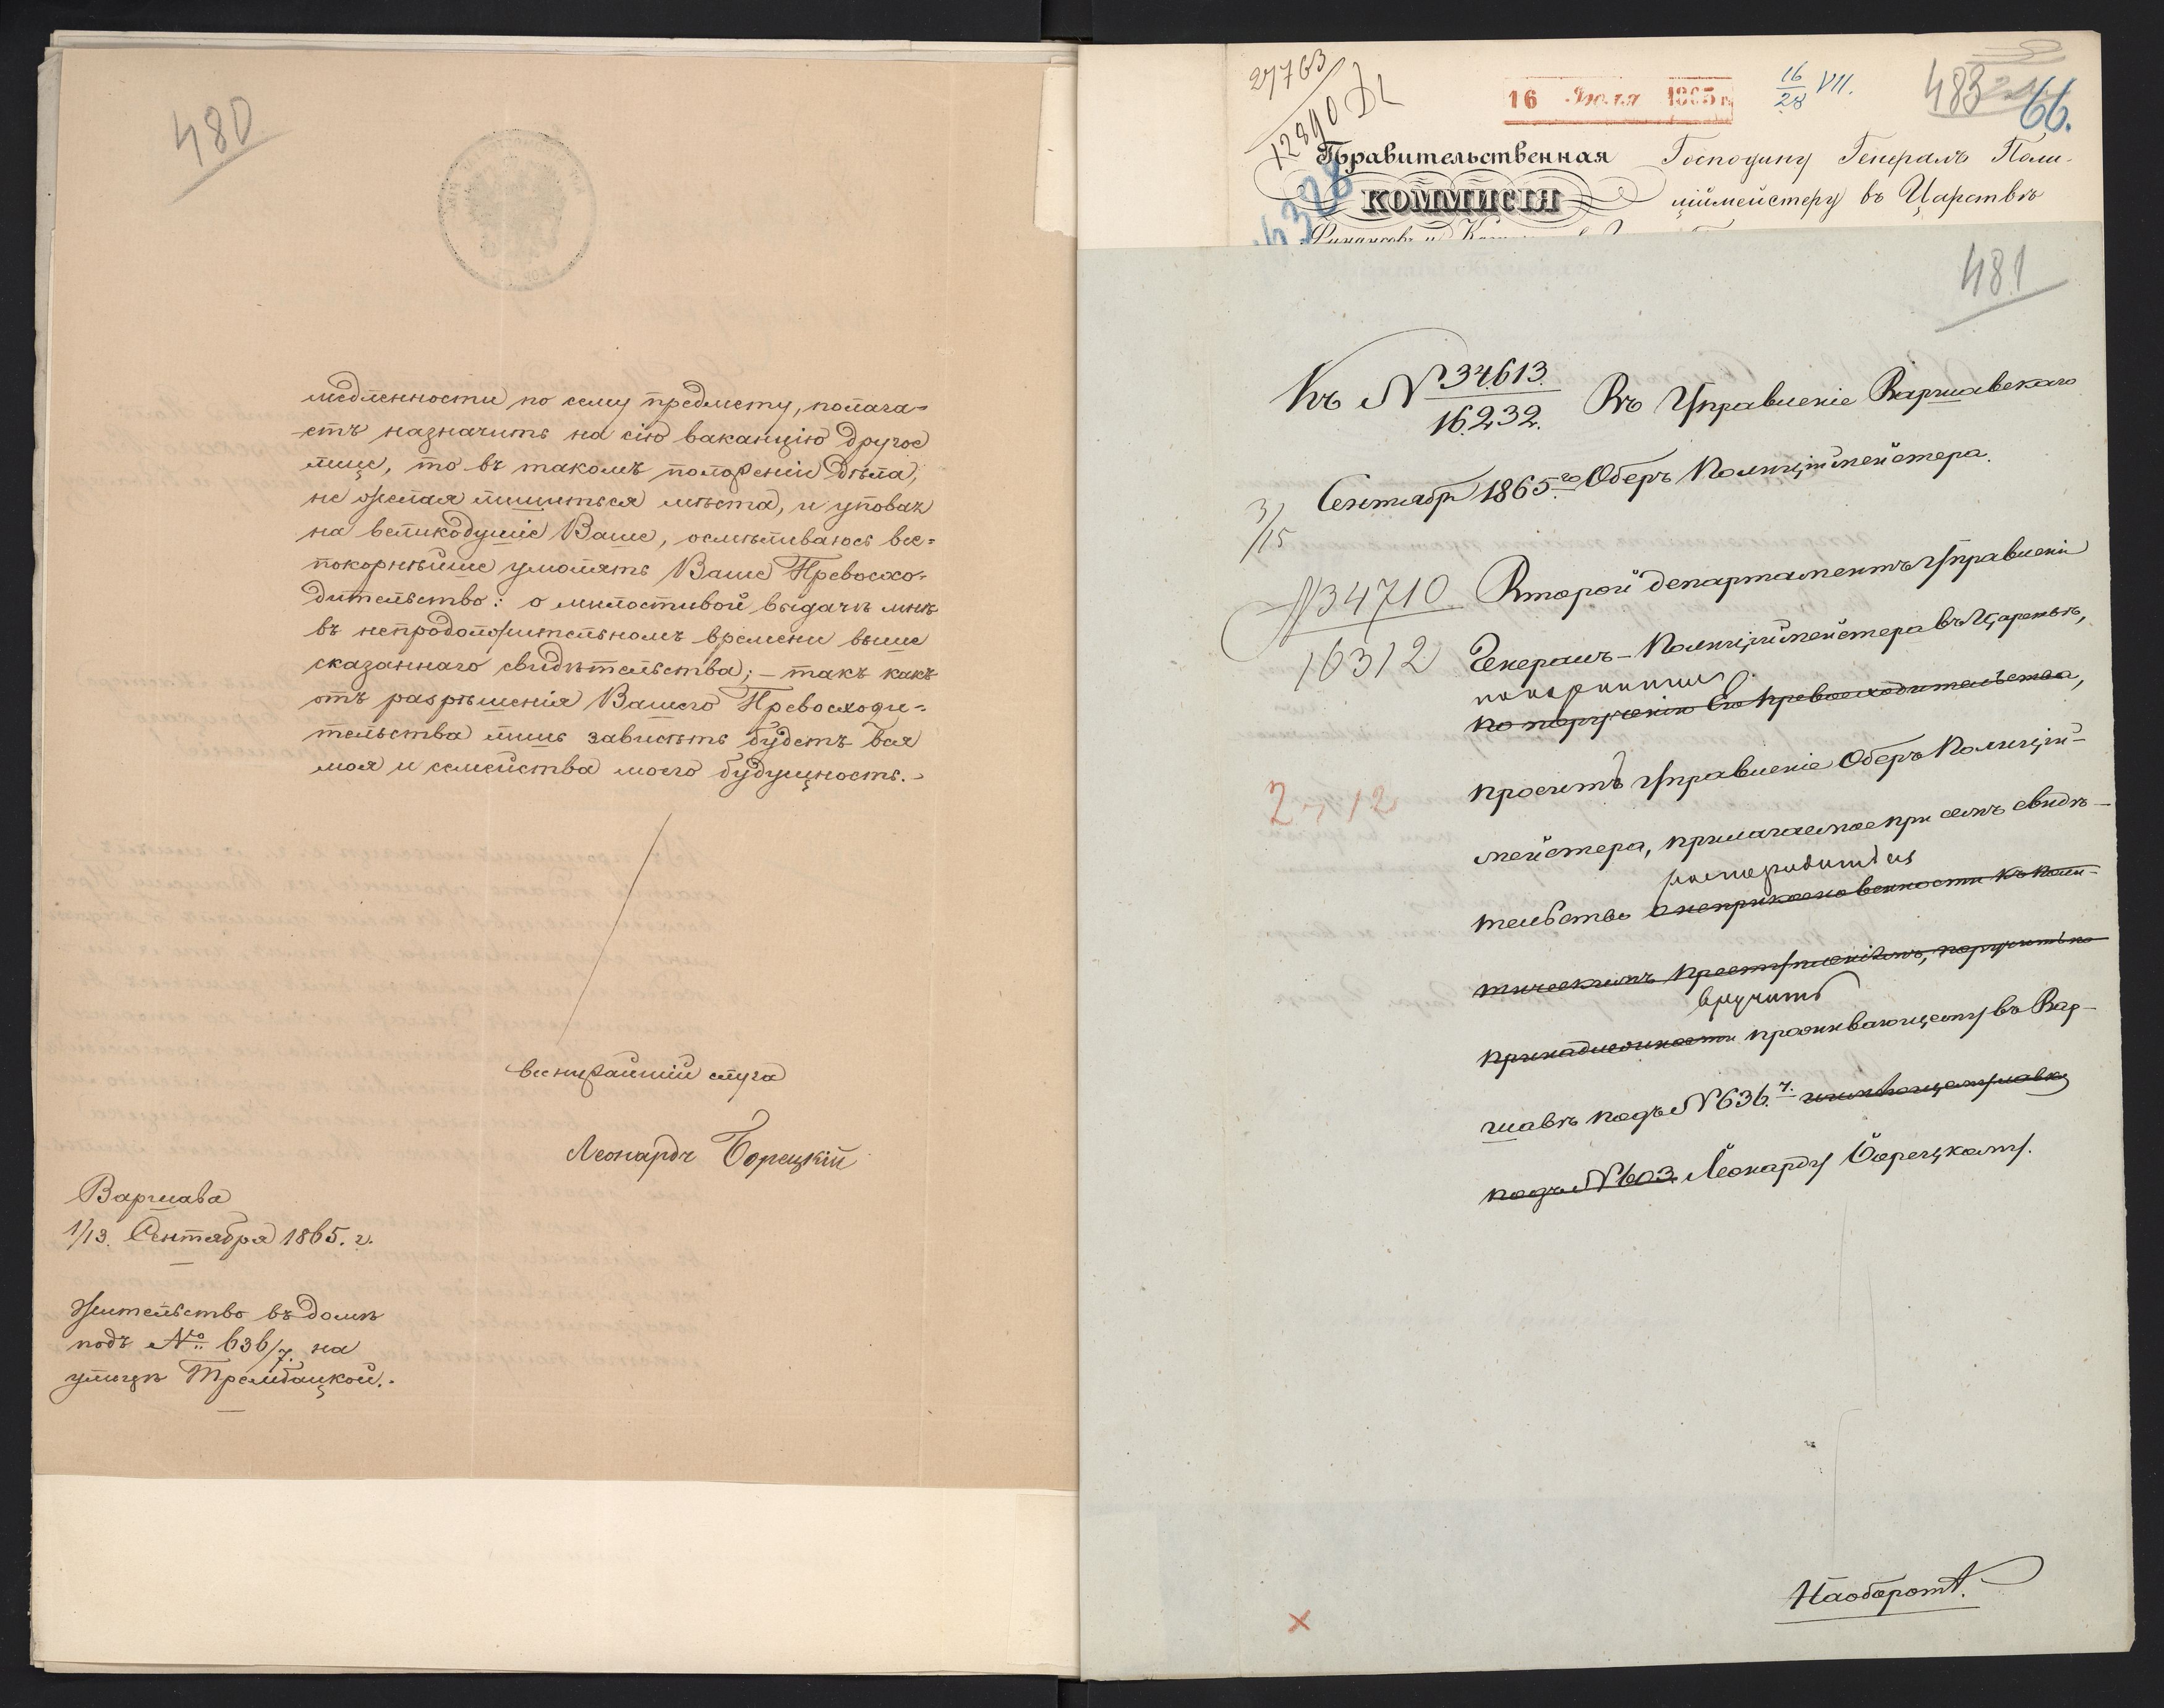 480
медленности по сему предмету, полага=
етъ назначить на сію ваканцію другое
лице, то въ такомъ положеніи дѣла,
не желая лишиться мѣста, и уповая
на великодушіе Ваше, осмѣливаюсь все=
покорнѣйше умолять Ваше Превосхо=
дительство: о милостивой выдачѣ мнѣ
въ непродолжительномъ времени выше
сказаннаго свидѣтельства; – такъ какъ
отъ разрѣшенія Вашего Превосходи=
тельства лишь зависѣть будетъ вся
моя и семейства моего будущность.
всенижайшій слуга
Леонардъ Борецкій
Варшава
1/13. Сентября 1865. г.
Жительство въ домѣ
подъ № 636/7. на
улицѣ Трембацкой.
27763
12890
16 Іюля 1865 г.
16/28 VII.
483
66.
6328
Правительственная
КОММИСІЯ
Господину Генералъ Поли-
ціймейстеру въ Царствѣ
481
Къ № 34613.
16232.
Въ Управленіе Варшавскаго
Оберъ Полиціймейстера.
3/15 Сентября 1865 го
№ 34710
16312
Второй департаментъ Управленія
Генералъ-Полиціймейстера въ Царствѣ,
покорнѣйше
по порученію Его Превосходительства,
проситъ Управленіе Оберъ Полицій-
мейстера, прилагаемое при семъ свидѣ-
распорядиться
тельство о неприкосновенности къ поли-
тическимъ преступленіямъ, поручить по
вручить
принадлежности проживающему въ Вар-
шавѣ подъ № 636.7.
подъ № 603. Леонарду Борецкому.
2 12
Наоборотъ.